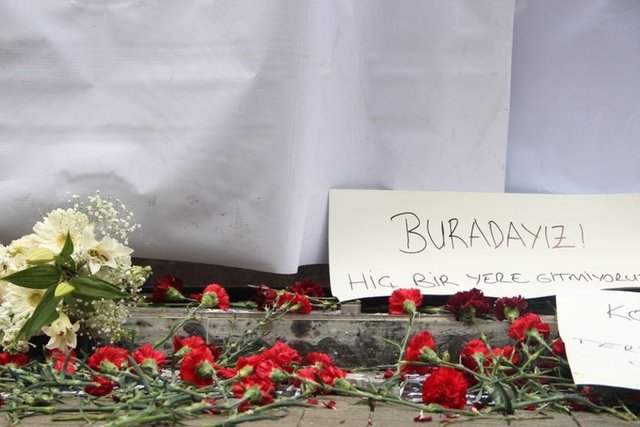 BURADAYIZ!
HİÇ BİR YERE GITMIYORU
KO
TER